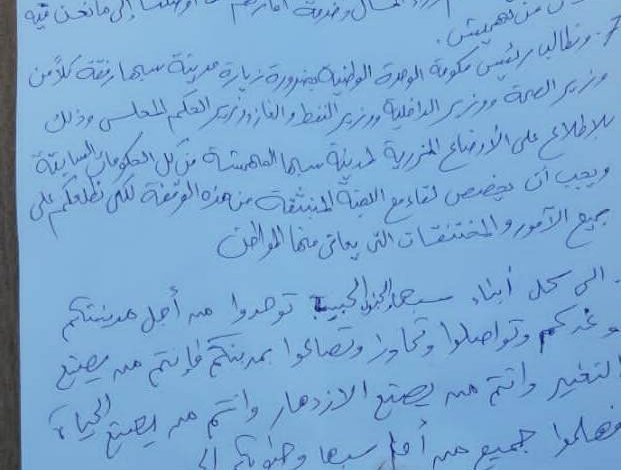 المسؤل وخدمة أمازيغهم أوصلتنا إلى ما نحن فيه
من تهميش.
2. ونطالب رئيس حكومة الوحدة الوطنية بضرورة زيارة مدينة سبها رفقة كلاً من
وزير الصحة ووزير الداخلية ووزير النفط والغاز ووزير الحكم المحلي وذلك
للاطلاع على الأوضاع المزرية لمدينة سبها المهمشة من كل الحكومات السابقة
ويجب أن يخصص لقاء مع اللجنة المنبثقة عن هذه الوقفة لكي نطلعكم على
جميع الأمور والمختنقات التي يعاني منها المواطن
. الى كل أبناء سبها الجنوب الحبيب توحدوا من أجل مدينتكم
وغدكم وتواصلوا وتحاوروا وتصالحوا بمدينتكم فإنتم من يصنع
التغير وانتم من يصنع الازدهار وانتم من يصنع الحياة
فهلموا جميع من أجل سبها